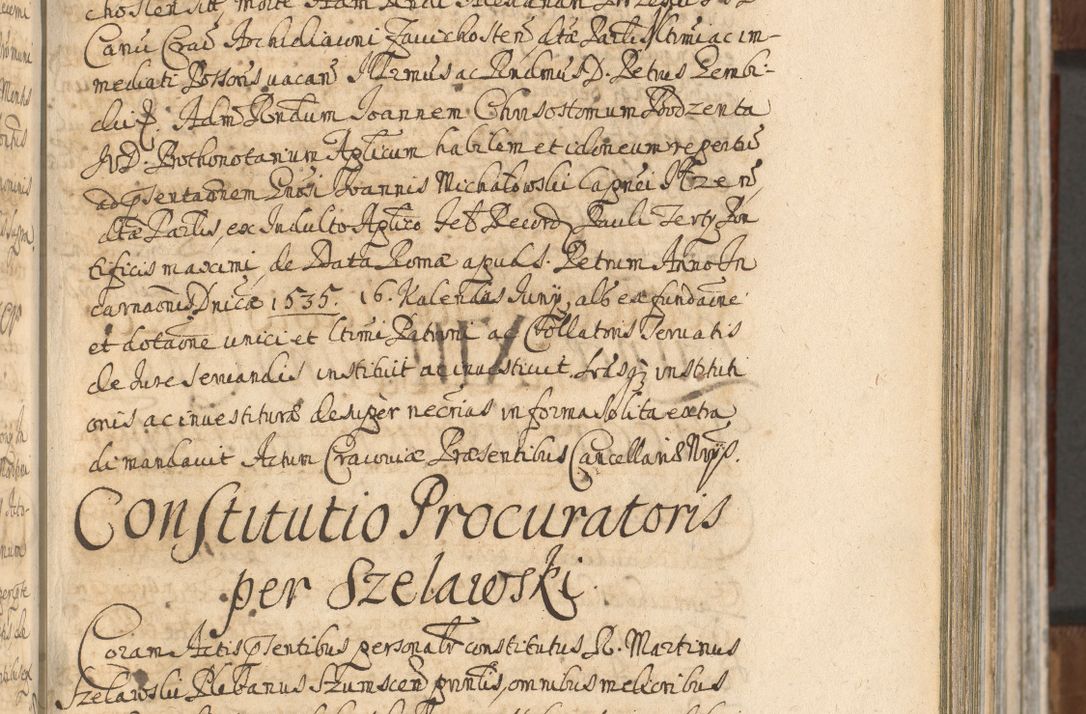 Canū Craō Archidiaconi Zavichosten̄ dtæ Parlis ltimi ac im-
mediati Possoris vacan̄ Illrimus ac Rndmus D. Petrus Gembi-
cki Adm Rndum Joannem Chrisostomum Bodzenta
JVD. Prothonotarium Aplicum habilem et idoneum repertū
ad pr̄sentaōnem Gnosi Joannis Michałowski
dtæ Parlis, ex Indulto Aplico fel Record Pauli Terty Pon
tificis maximi, de Data Romæ apud S. Petrum Anno In
carnaōnis Dnicæ 1535. 16. Kalendas Juny, alb ex fundaōne
et dotaōne unici et ltimi Patroni ac Collatoris servatis
de Jure servandis instituit ac investivit. Lrasq; instituti
onis ac investituræ desuper necrias in forma solita extra
di mandavit Actum Cracoviæ Præsentibus Cancellariæ Nrijs.
Constitutio Procuratoris
per Szelawski
Coram Actis pr̄sentibus personalr constitutus R. Martinus
Szelawski Plebanus Szumscen̄ prntis, omnibus melioribus